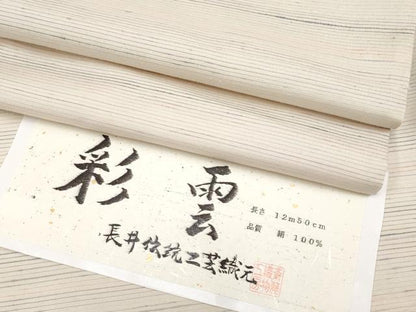 彩雲
長さ 12m50cm
品質 絹 100%
長井伝統工芸織元